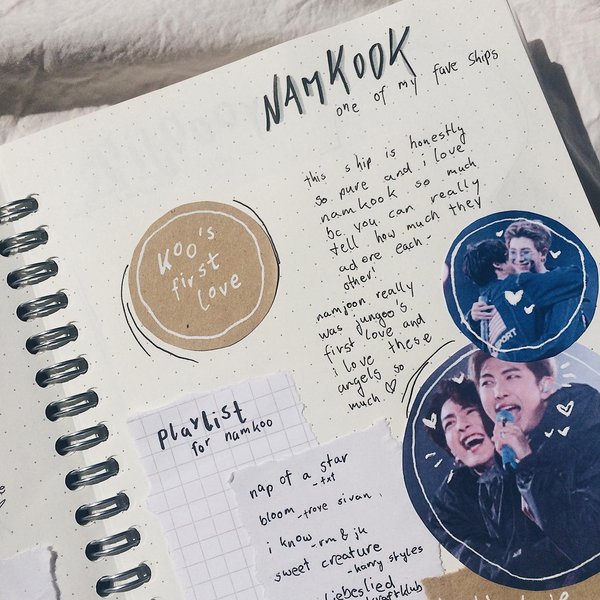 NAMKOOK
one of my fave ships
this ship is honestly
so pure and i love
namkook so much
bc you can really
tell how much they
adore each-
other!
namjoon really
was jungoo's
first love and
i love these
angels so
much ♡
Koo's
first
love
playlist
for namkoo
nap of a star
-txt
bloom -trove sivan
i know -rm & jk
sweet creature
-harry styles
liebeslied
PORT